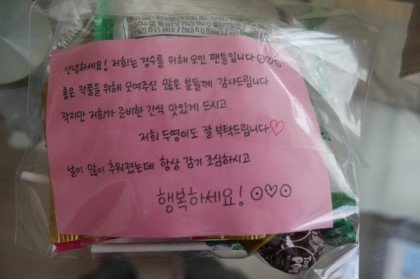 안녕하세요! 저희는 경수를 위해 모인 팬들입니다 ⊙♡⊙
좋은 작품을 위해 모여주신 많은 분들께 감사드립니다
작지만 저희가 준비한 간식 맛있게 드시고
저희 두명이도 잘 부탁드립니다♡
날이 많이 추워졌는데 항상 감기 조심하시고
행복하세요! ⊙♡⊙